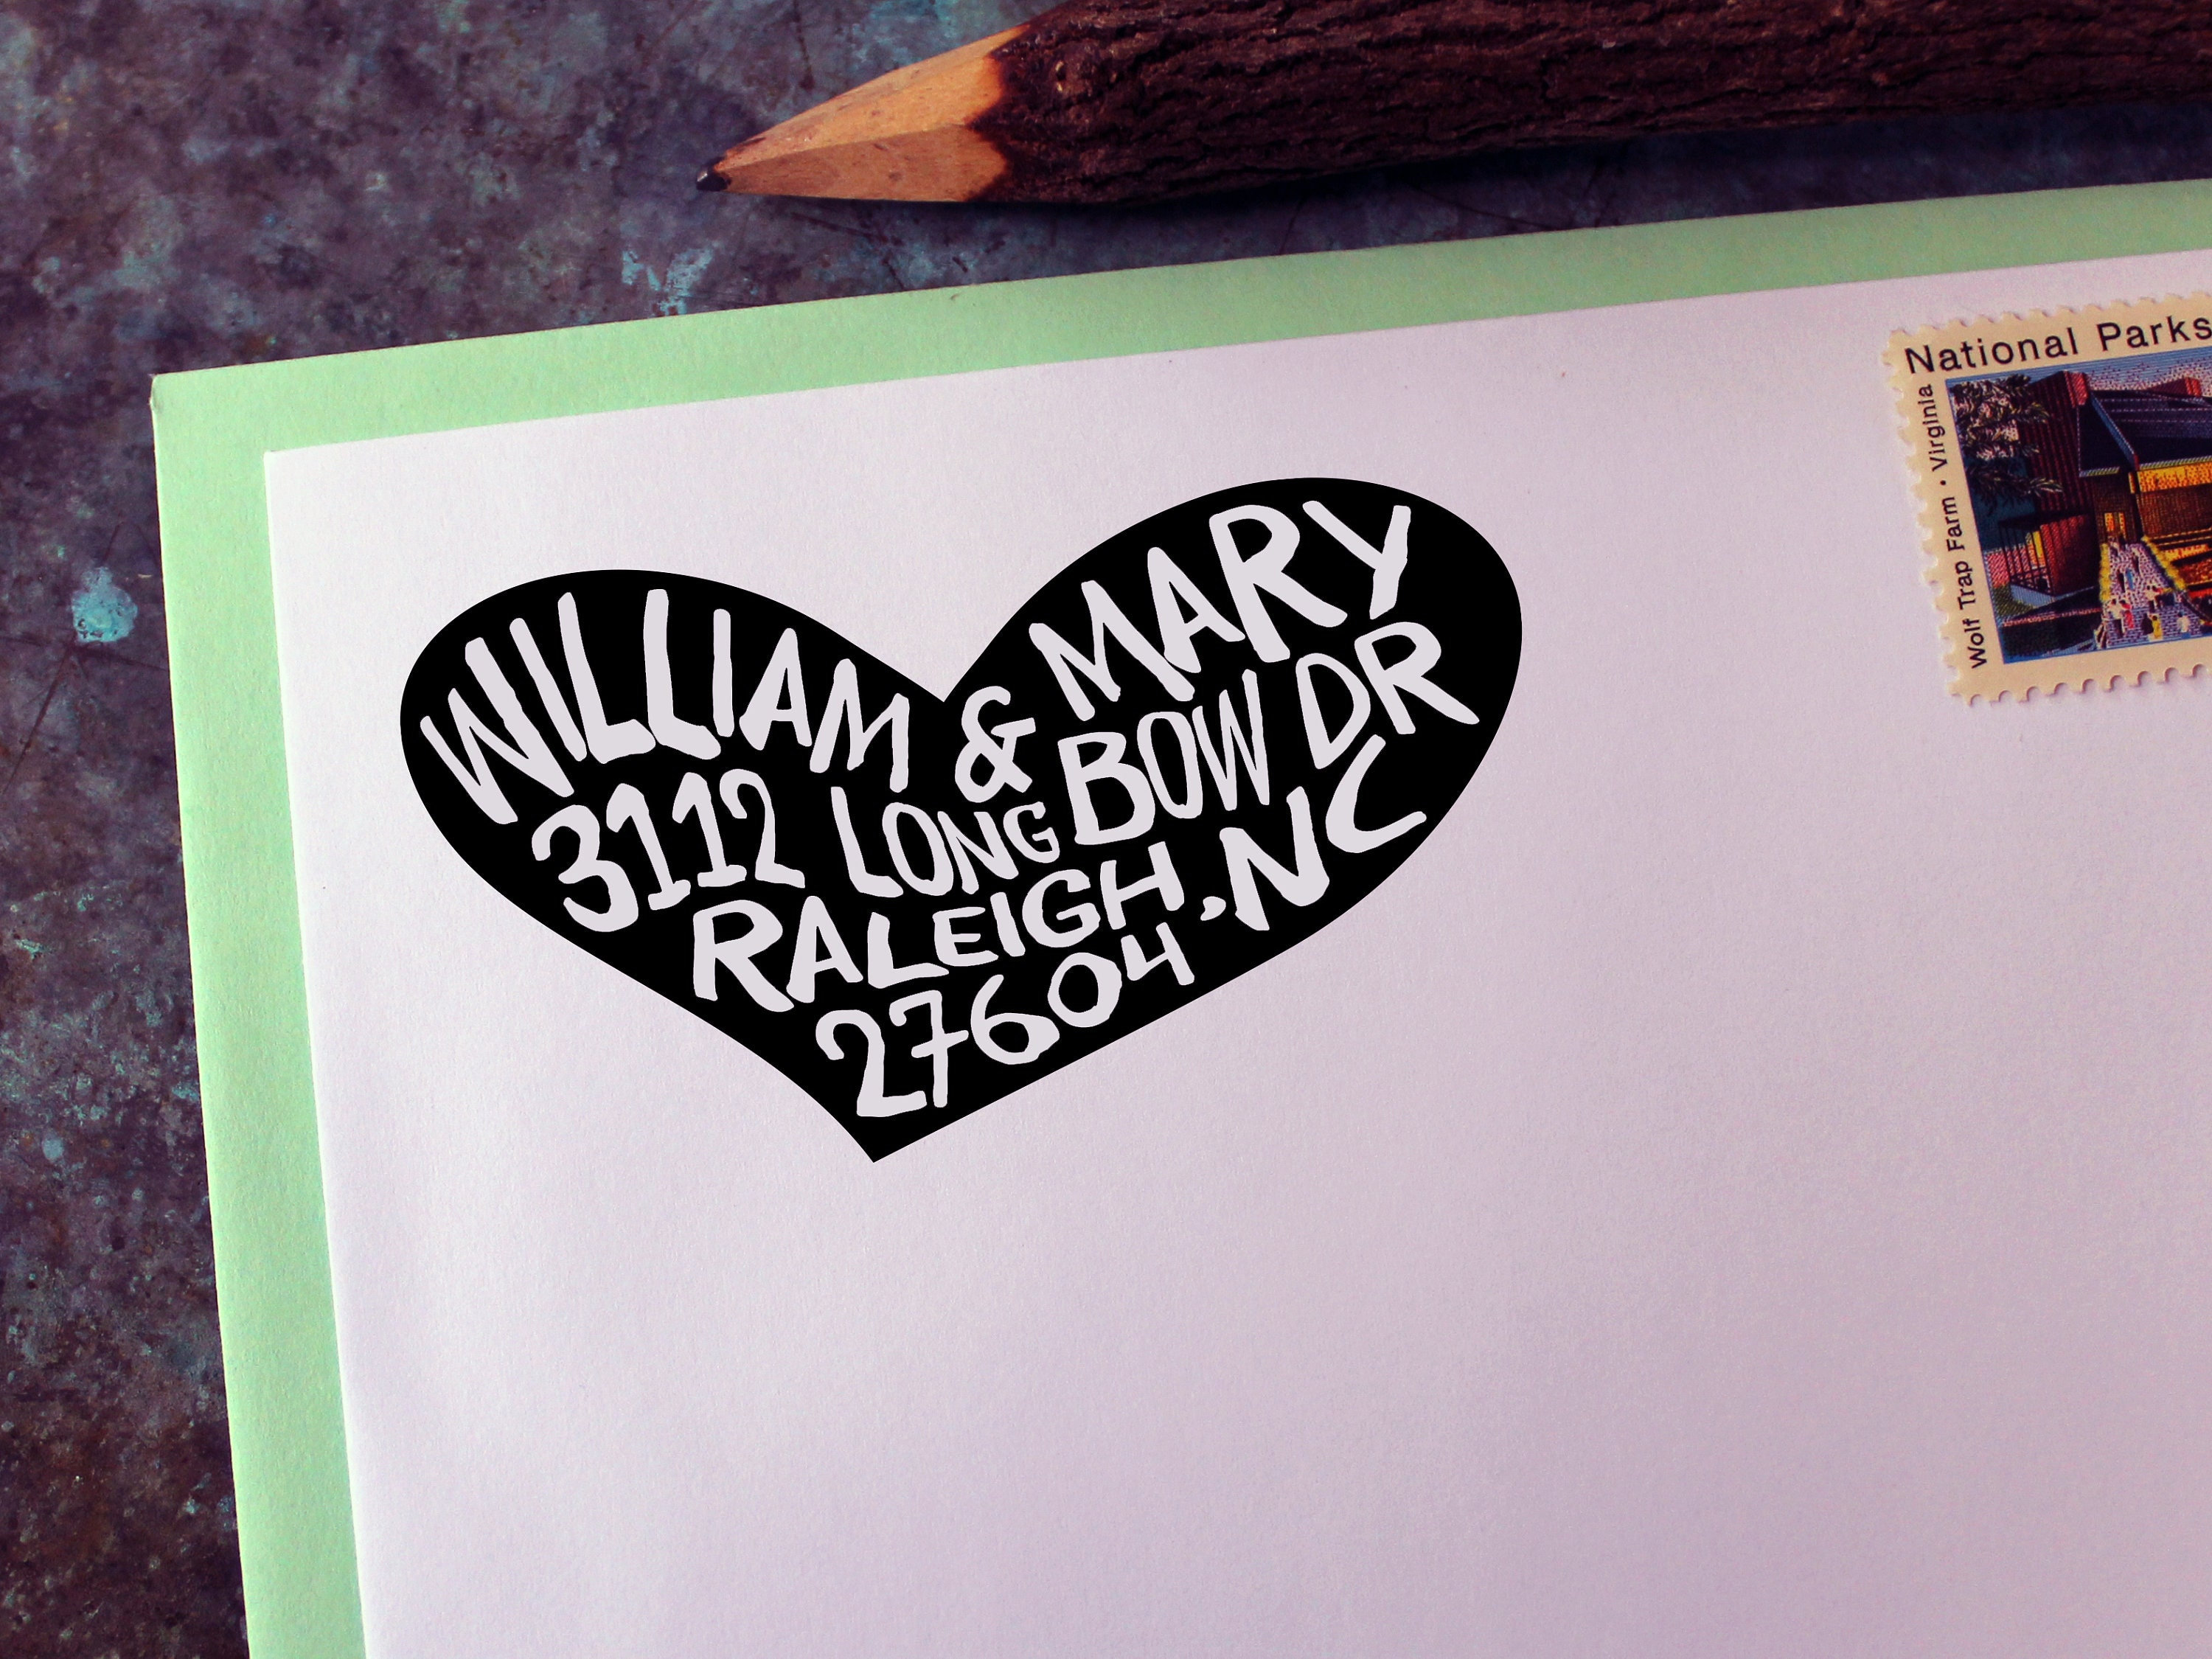 WILLIAM & MARY
3112 LONG BOW DR
RALEIGH, NC
27604
National Parks
Wolf Trap Farm · Virginia